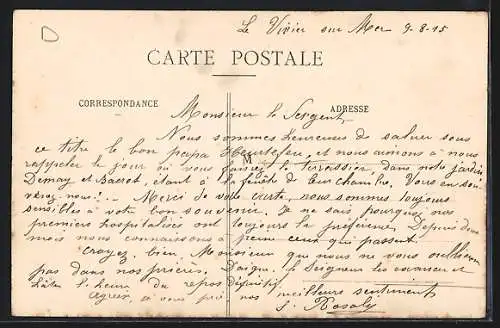 Le Vivier sur Mer 9-8-15
CARTE POSTALE
CORRESPONDANCE
ADRESSE
Monsieur le Sergent,
Nous sommes heureuses de saluer sous
ce titre le bon papa et nous aimons à nous
rappeler le jour où vous faisiez le terrassier dans notre jardin
Demay et étant à la fenêtre de leur chambre. Vous en sou-
venez-vous? Merci de votre carte, nous sommes toujours
sensibles à votre bon souvenir. Je ne sais pourquoi nos
premiers hospitalisés ont toujours la préférence. Depuis deux
mois nous connaissons à peine ceux qui passent.
Croyez bien, Monsieur que nous ne vous oublions
pas dans nos prières. Daigne le Seigneur les exaucer et
hâter l'heure du repos définitif
Agréez, meilleurs sentiments
S. Rosaly